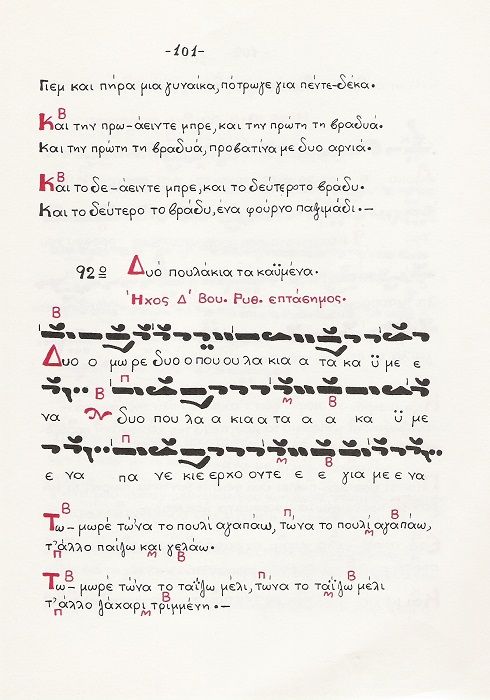 -101-
Πεμ και πήρα μια γυναίκα, πότρωγε για πέντε-δέκα.
Β
Και την πρω-άειντε μπρε, και την πρώτη τη βραδυά.
Και την πρώτη τη βραδυά, προβατίνα με δυο αρνιά.
Β
Και το δε-άειντε μπρε, και το δεύτερο το βράδυ.
Και το δεύτερο το βράδυ, ένα φούρνο παξιμάδι.-
92º Δυό πουλάκια τα καϋμένα.
Ήχος Δ' Βου. Ρυθ. επτάσημος.
Β
Δυο ο μωρε δυο ο που ου λα κια α τα κα ϋ με ε
Β Π Μ Β
να Ν δυο που λα α κια α τα α α κα ϋ με
Π Μ Β
ε να πα νε κι ερχο οντε ε ε για με ε να
Β Π Β
Τω-μωρέ τώνα το πουλί αγαπάω, τώνα το πουλί αγαπάω,
Μ
τ' άλλο παίζω και γελάω.
Π Μ Β
Β Π Β
Τω-μωρέ τώνα το ταΐζω μέλι, τώνα το ταΐζω μέλι
Μ
τ' άλλο ζάχαρι τριμμένη.-
Π Μ Β